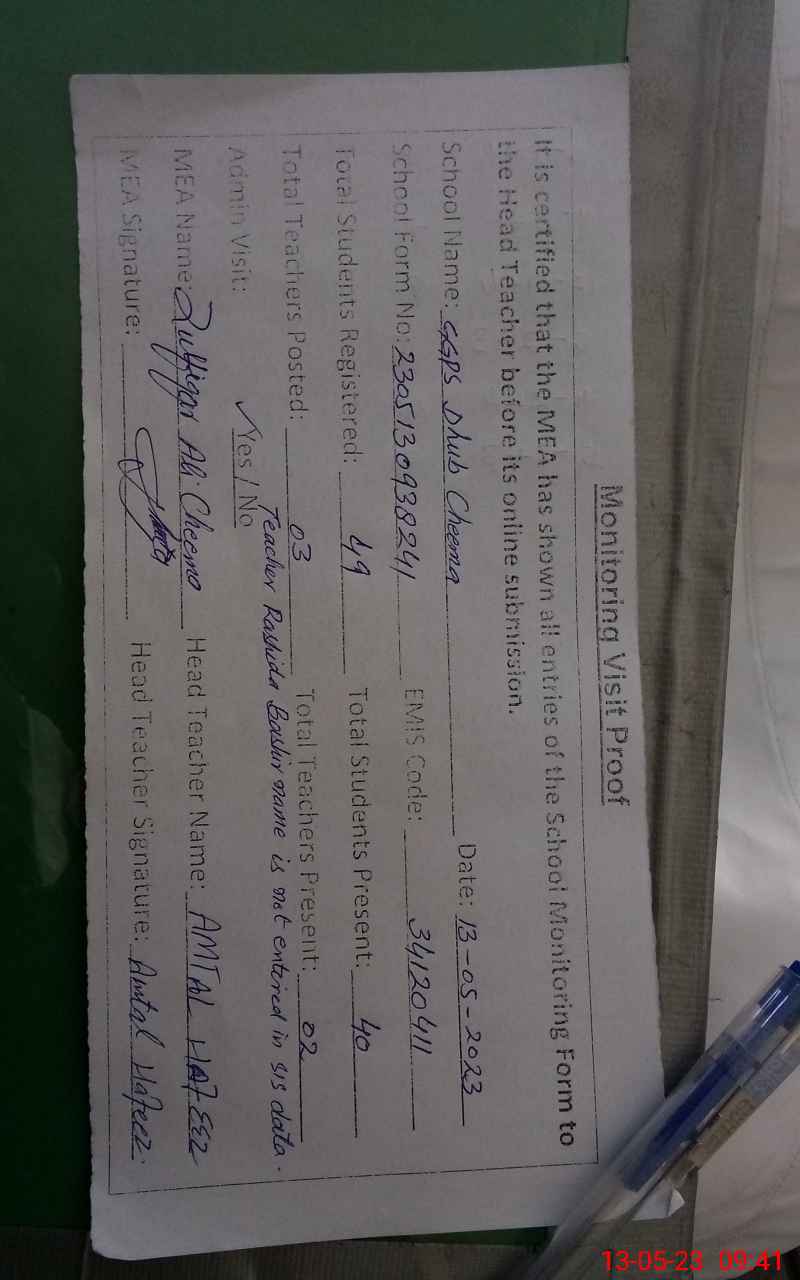 Monitoring Visit Proof
It is certified that the MEA has shown all entries of the School Monitoring Form to
the Head Teacher before its online submission.
School Name: GGPS Dhub Cheema Date: 13-05-2023
School Form No: 2305130938241 EMIS Code: 34120411
Total Students Registered: 49 Total Students Present: 40
Total Teachers Posted: 03 Total Teachers Present: 02
Teacher Rashida Bashir name is not entered in SIS data.
Admin Visit: ✓Yes / No
MEA Name: Zulfiqar Ali Cheema Head Teacher Name: AMTAL HAFEEZ
MEA Signature: Head Teacher Signature: Amtal Hafeez.
13-05-23 09:41